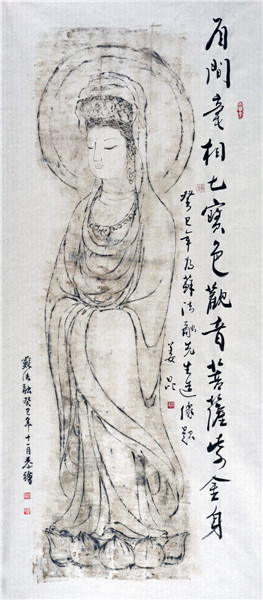 眉間毫相七寶色觀音菩薩紫金身
癸巳年為蘇法融先生造像題
姜昆
蘇法融癸巳年十一月恭繪